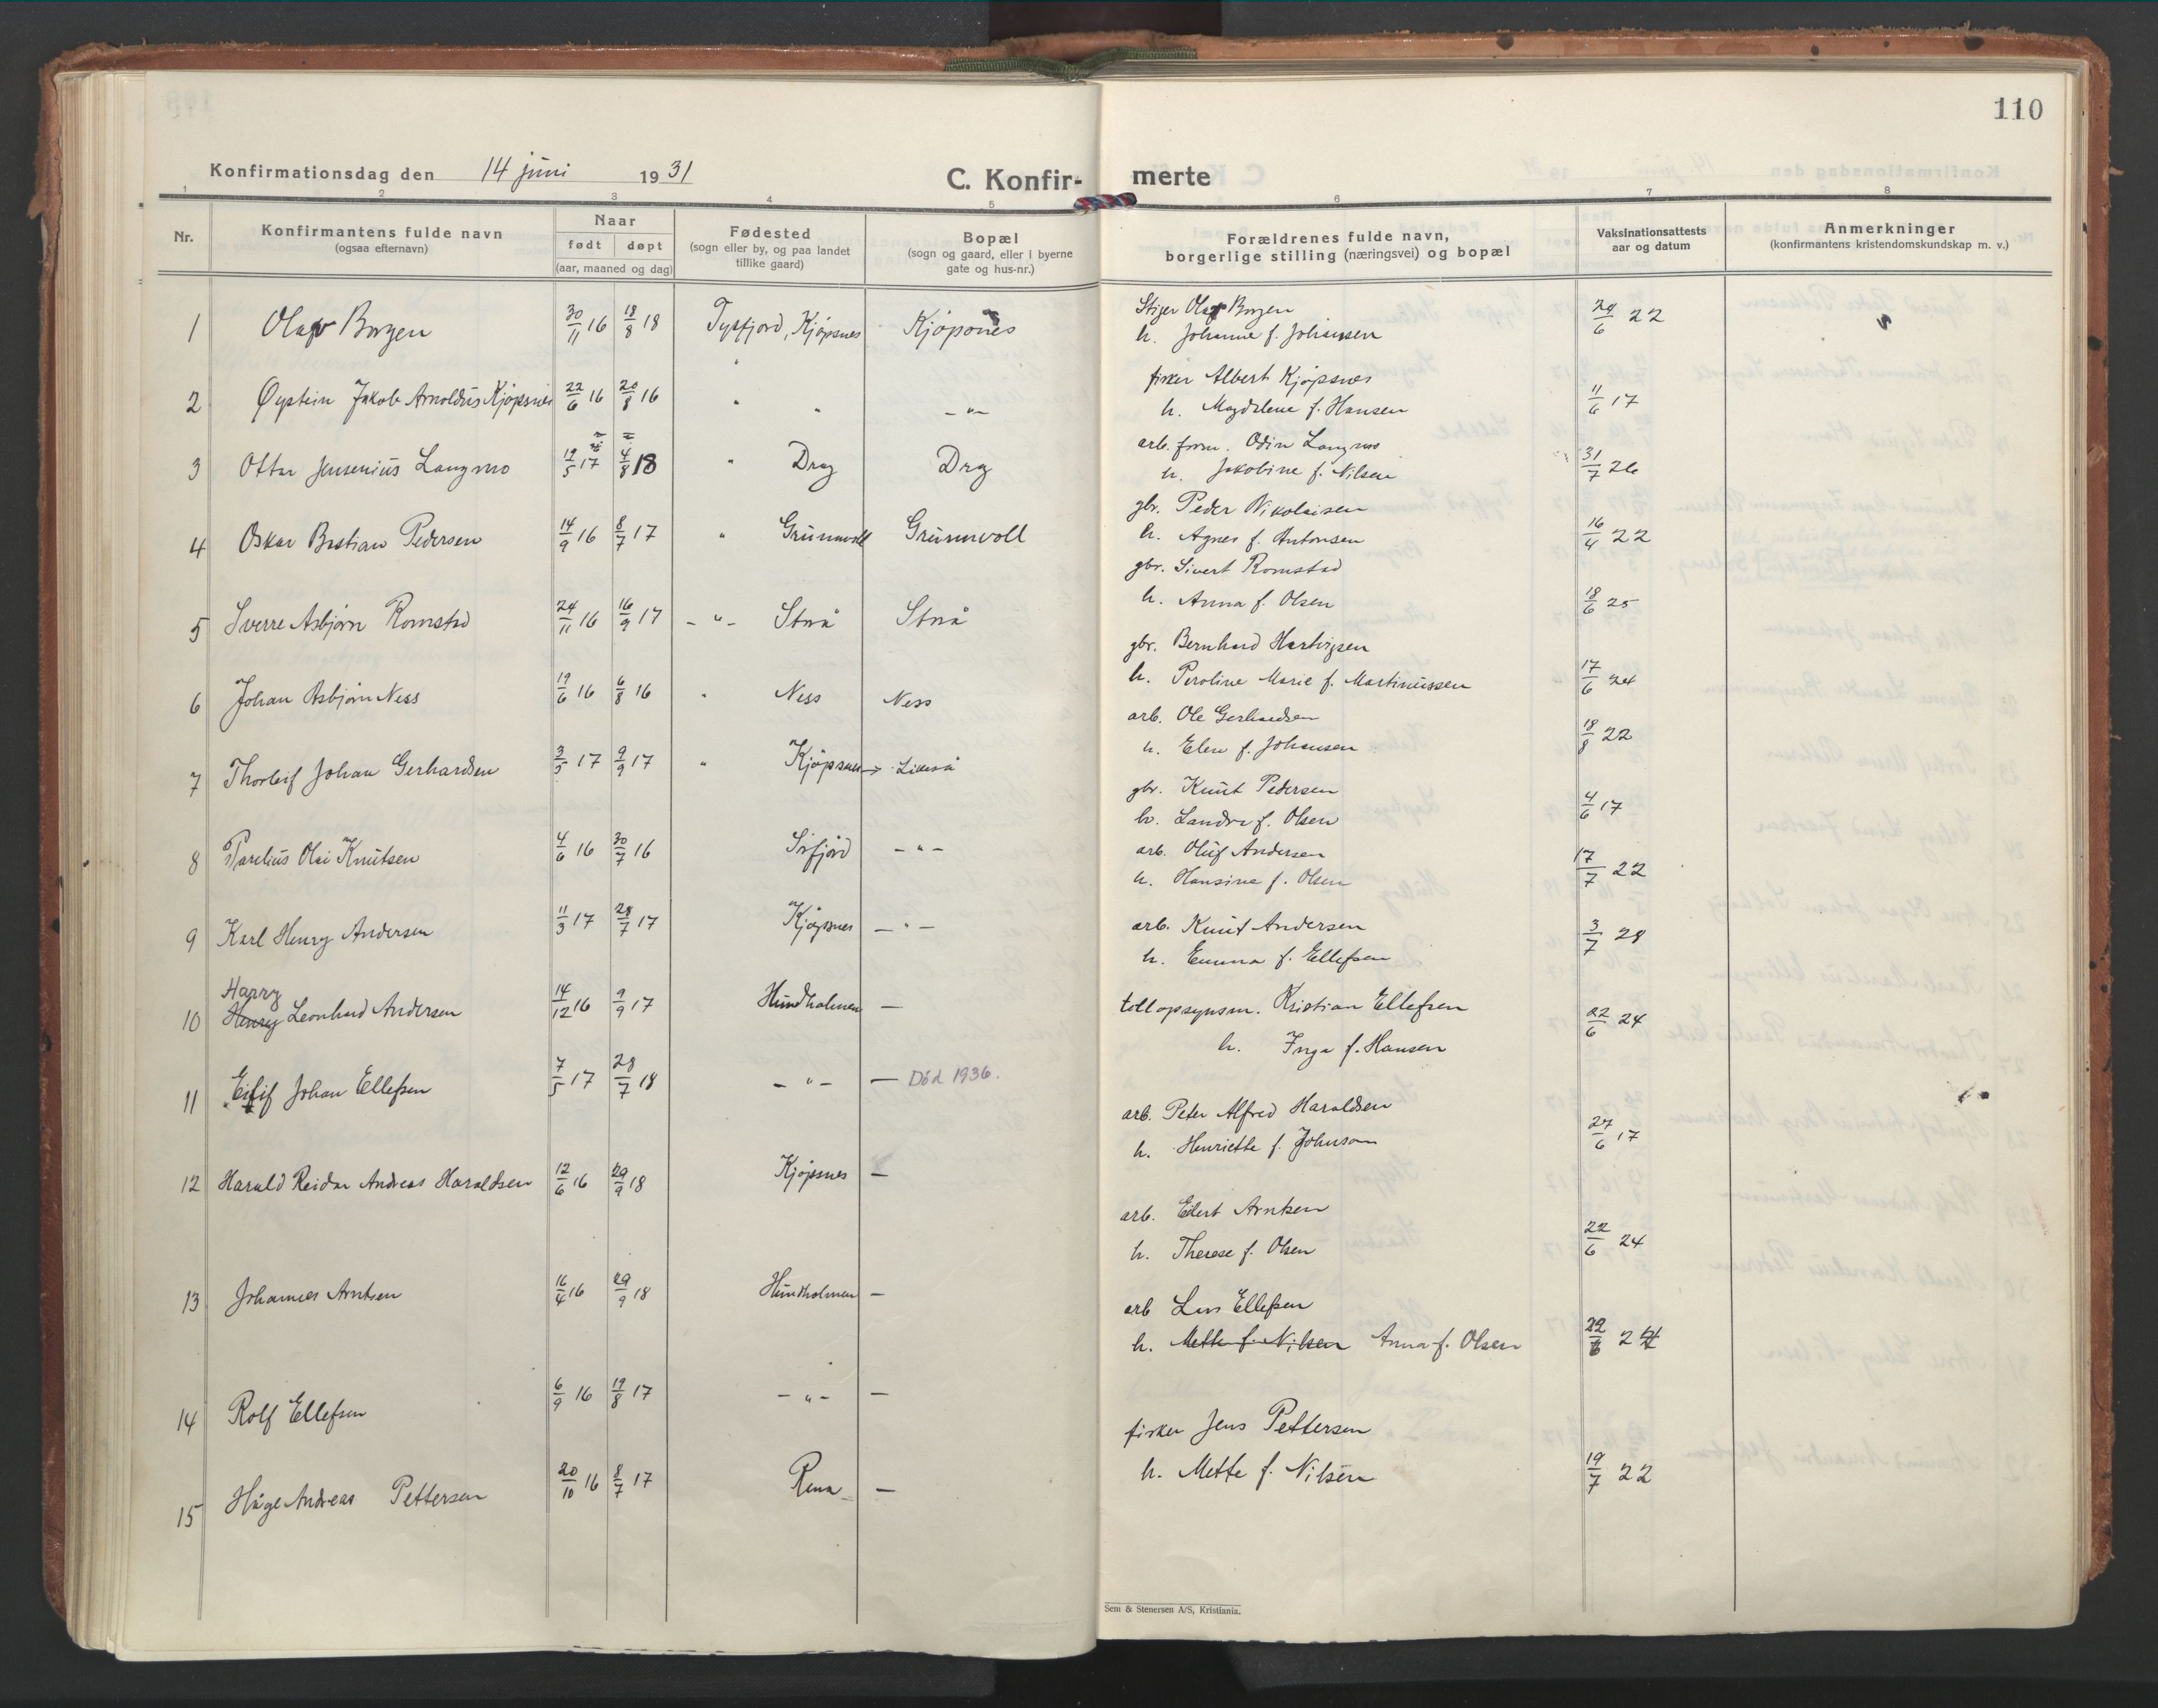 110
Konfirmationsdag den 14 juni 1931
C. Konfir- merte
1 2 3 4 5 6 7 8
Nr.
Konfirmantens fulde navn
(ogsaa efternavn)
Naar
født døpt
(aar, maaned og dag)
Fødested
(sogn eller by, og paa landet
tillike gaard)
Bopæl
(sogn og gaard, eller i byerne
gate og hus-nr.)
Forældrenes fulde navn,
borgerlige stilling (næringsvei) og bopæl
Vaksinationsattests
aar og datum
Anmerkninger
(konfirmantens kristendomskundskap m. v.)
1 Olav Borgen 30/11 16 18/8 18 Tysfjord, Kjøpsnes Kjøpsnes Stiger Olaf Borgen 29/6 22
h. Johanne f. Johansen
2 Øystein Jakob Arnoldus Kjøpsnes 22/6 16 20/8 16 " " -"- fisker Albert Kjøpsnes 11/6 17
h. Magdalene f. Hansen
3 Ottar Jensenius Langmo 19/5 17 4/8 18 " Drag Drag arb.form. Odin Langmo 31/7 26
h. Jakobine f. Nilsen
4 Oskar Bastian Pedersen 14/9 16 8/7 17 " Grunnvoll Grunnvoll gbr. Peder Nikolaisen 16/4 22
h. Agnes f. Antonsen
5 Sverre Asbjørn Romstad 24/11 16 16/9 17 -"- Storå Storå gbr. Sivert Romstad 18/6 25
h. Anna f. Olsen
6 Johan Asbjørn Ness 19/6 16 6/8 16 " Ness Ness gbr. Bernhard Hartvigsen 17/6 24
h. Peroline Marie f. Martinussen
7 Thorleif Johan Gerhardsen 3/5 17 9/9 17 " Kjøpsnes → arb. Ole Gerhardsen 18/8 22
h. Elen f. Johansen
8 Parelius Olai Knutsen 4/6 16 30/7 16 Sørfjord -"- gbr. Knut Pedersen 4/6 17
h. Landra f. Olsen
9 Karl Henry Andersen 11/3 17 28/7 17 Kjøpsnes -"- arb. Oluf Andersen 17/7 22
h. Hansine f. Olsen
10 Harry Henry Leonhard Andersen 14/12 16 9/9 17 Hundholmen — arb. Knut Andersen 3/7 28
h. Emma f. Ellefsen
11 Eilif Johan Ellefsen 7/5 17 28/7 18 -"- — Død 1936. tollopsynsm. Kristian Ellefsen 22/6 24
h. Inga f. Hansen
12 Harald Reidar Andreas Haraldsen 12/6 16 29/9 18 Kjøpsnes — arb. Peter Alfred Haraldsen 27/6 17
h. Henriette f. Johnson
13 Johannes Arntsen 16/4 16 29/9 18 Hundholmen — arb. Edert Arntsen 22/6 24
h. Therese f. Olsen
14 Rolf Ellefsen 6/9 16 19/8 17 -"- — arb Lars Ellefsen 22/6 24
h. Mette f. Nilsen Anna f. Olsen
15 Håge Andreas Pettersen 20/10 16 8/7 17 — fisker Jens Pettersen 19/7 22
h. Mette f. Nilsen
Sem & Stenersen A/S, Kristiania.